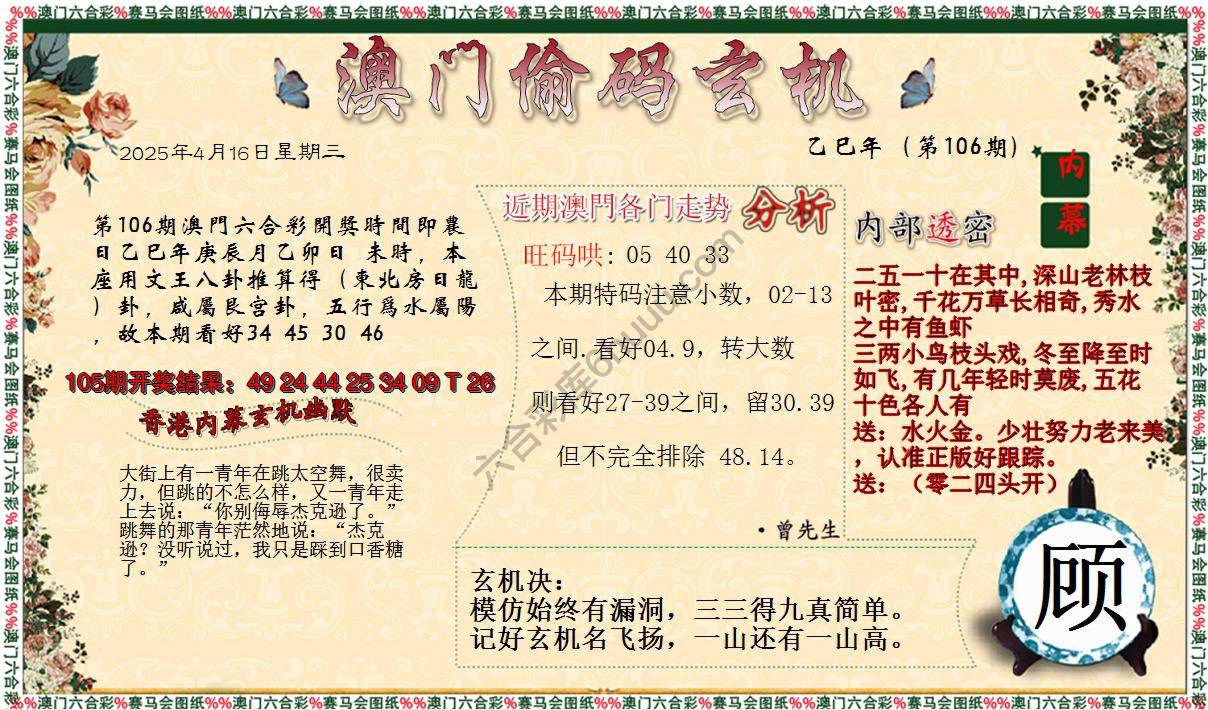 %%澳门六合彩%赛马会图纸%%澳门六合彩%赛马会图纸%%澳门六合彩%赛马会图纸%%澳门六合彩%赛马会图纸%%澳门六合彩%赛马会图纸%%澳门六合彩%赛马会图纸%%
澳门偷码玄机
2025年4月16日星期三
乙巳年（第106期）
内幕
第106期澳門六合彩開獎時間即農
日乙巳年庚辰月乙卯日 未時，本
座用文王八卦推算得（東北房日龍
）卦，咸屬艮宫卦，五行爲水屬陽
，故本期看好34 45 30 46
105期开奖结果：49 24 44 25 34 09 T 26
香港内幕玄机幽默
大街上有一青年在跳太空舞，很卖
力，但跳的不怎么样，又一青年走
上去说：“你别侮辱杰克逊了。”
跳舞的那青年茫然地说：“杰克
逊？没听说过，我只是踩到口香糖
了。”
近期澳門各门走势 分析
旺码哄: 05 40 33
本期特码注意小数，02-13
之间.看好04.9，转大数
则看好27-39之间，留30.39
但不完全排除 48.14。
·曾先生
内部透密
二五一十在其中,深山老林枝
叶密,千花万草长相奇,秀水
之中有鱼虾
三两小鸟枝头戏,冬至降至时
如飞,有几年轻时莫废,五花
十色各人有
送：水火金。少壮努力老来美
，认准正版好跟踪。
送：（零二四头开）
玄机决：
模仿始终有漏洞，三三得九真简单。
记好玄机名飞扬，一山还有一山高。
顾
%%澳门六合彩%赛马会图纸%%澳门六合彩%赛马会图纸%%澳门六合彩%赛马会图纸%%澳门六合彩%赛马会图纸%%澳门六合彩%赛马会图纸%%澳门六合彩%赛马会图纸%%